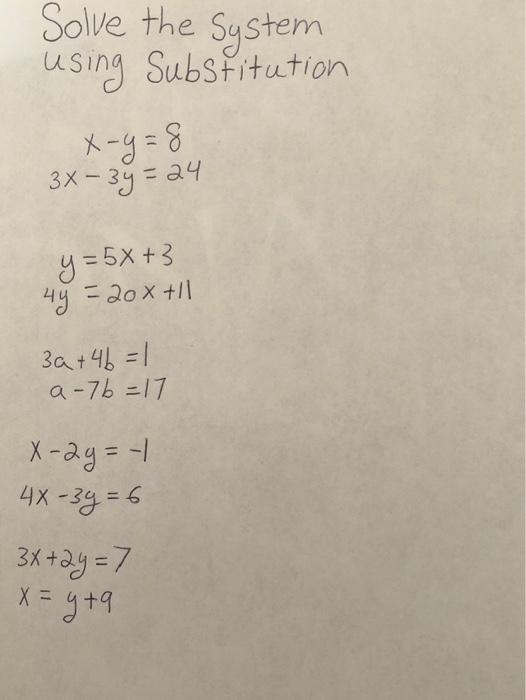 Solve the System
using Substitution
x-y=8
3x-3y=24
y=5x+3
4y=20x+11
3a+4b=1
a-7b=17
x-2y=-1
4x-3y=6
3x+2y=7
x=y+9